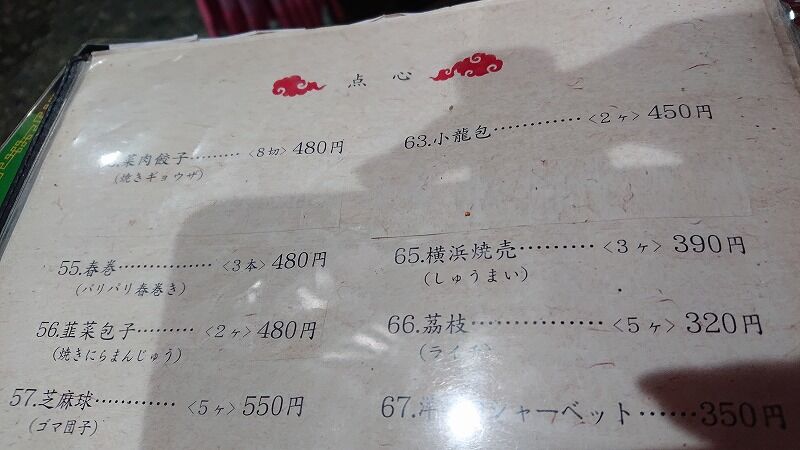 点心
菜肉餃子………〈8切〉480円
(焼きギョウザ)
55.春巻……………〈3本〉480円
(パリパリ春巻き)
56.韮菜包子………〈2ヶ〉480円
(焼きにらまんじゅう)
57.芝麻球…………〈5ヶ〉550円
(ゴマ団子)
63.小龍包…………〈2ヶ〉450円
65.横浜焼売………〈3ヶ〉390円
(しゅうまい)
66.荔枝……………〈5ヶ〉320円
(ライチ)
67.洋 シャーベット……350円